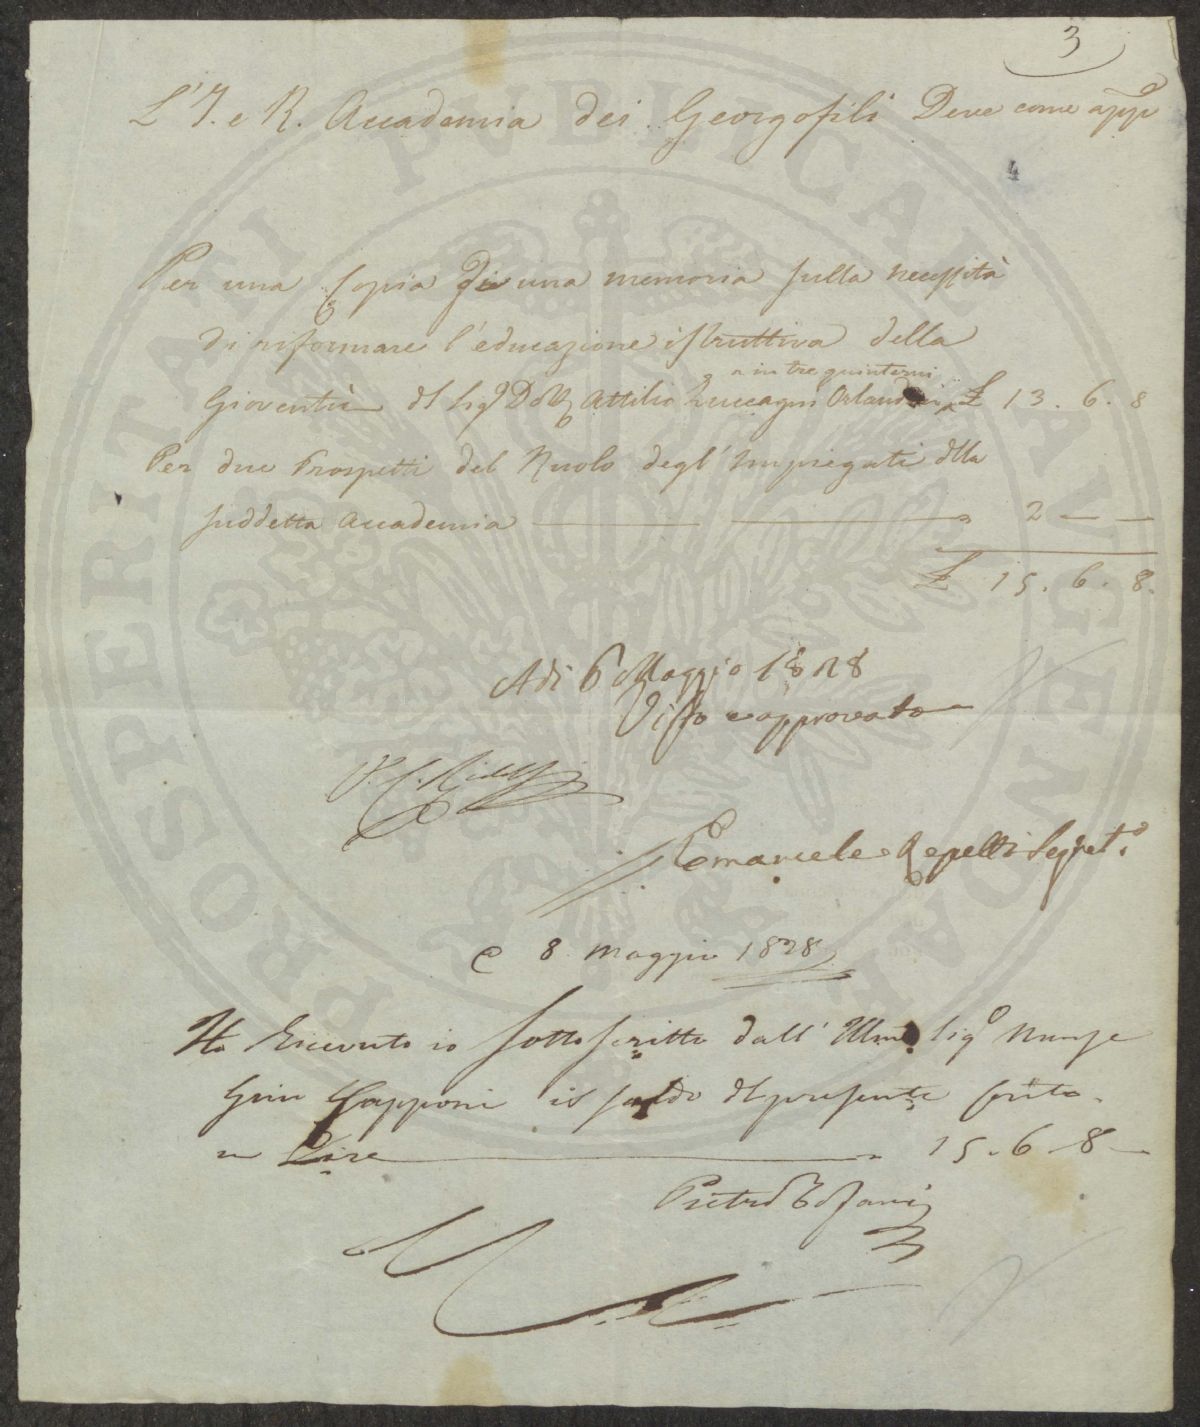 3
L'I. e R. Accademia dei Georgofili Deve come app.º
4
Per una Copia di una memoria sulla necessità
di riformare l'educazione istruttiva della
a in tre quinterni
Gioventù del Sigº Dottº Attilio Zuccagni Orlandini £ 13. 6. 8
Per due Prospetti del Ruolo degl'Impiegati della
suddetta Accademia 2 — —
£ 15. 6. 8.
Adi 6 Maggio 1828
Visto e approvato
V. C. Ridolfi
Emanuele Repetti Segret.º
8 Maggio 1828
Ho Ricevuto io sottoscritto dall' Illmo Sigº
Gino Capponi il saldo del presente conto
in Lire 15. 6. 8 —
Pietro
PROSPERITATI PVBLICAE AVGENDAE